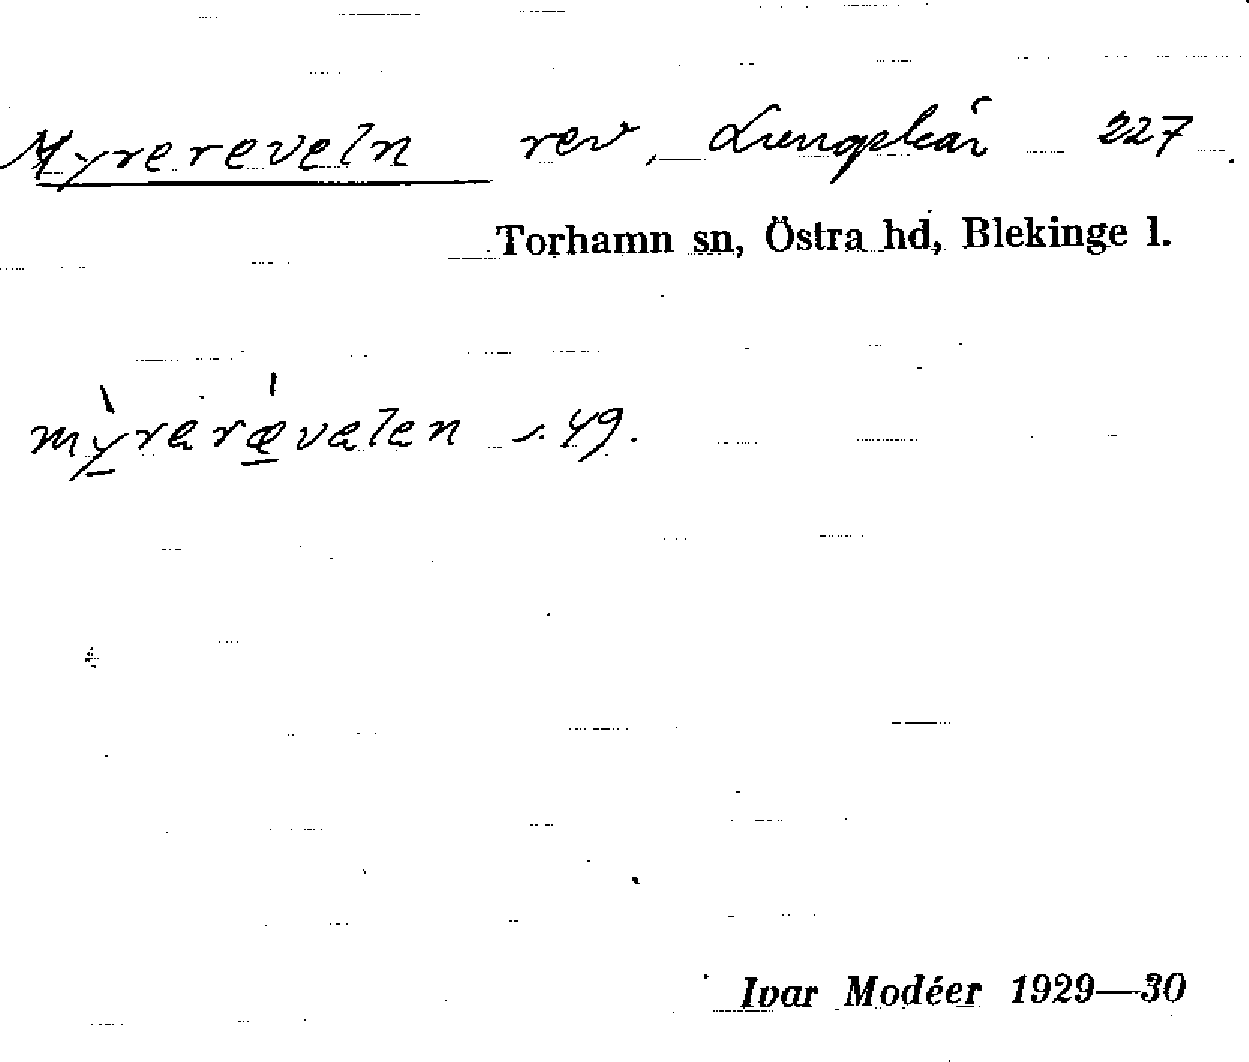 Myrereveln rev, Lungskär 227.
Torhamn sn, Östra hd, Blekinge l.
mỳrərævələn s. 49.
Ivar Modéer 1929—30